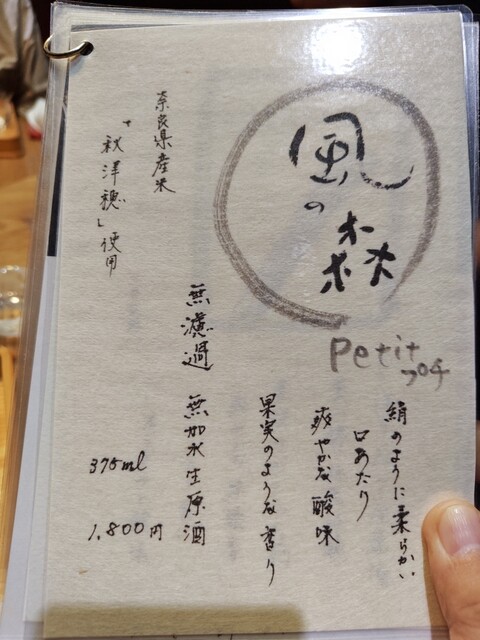 風の森
Petit
プチ
絹のように柔らかい
口あたり
爽やかな酸味
果実のような香り
無濾過
無加水生原酒
奈良県産米
「秋津穂」使用
375ml
1,800円